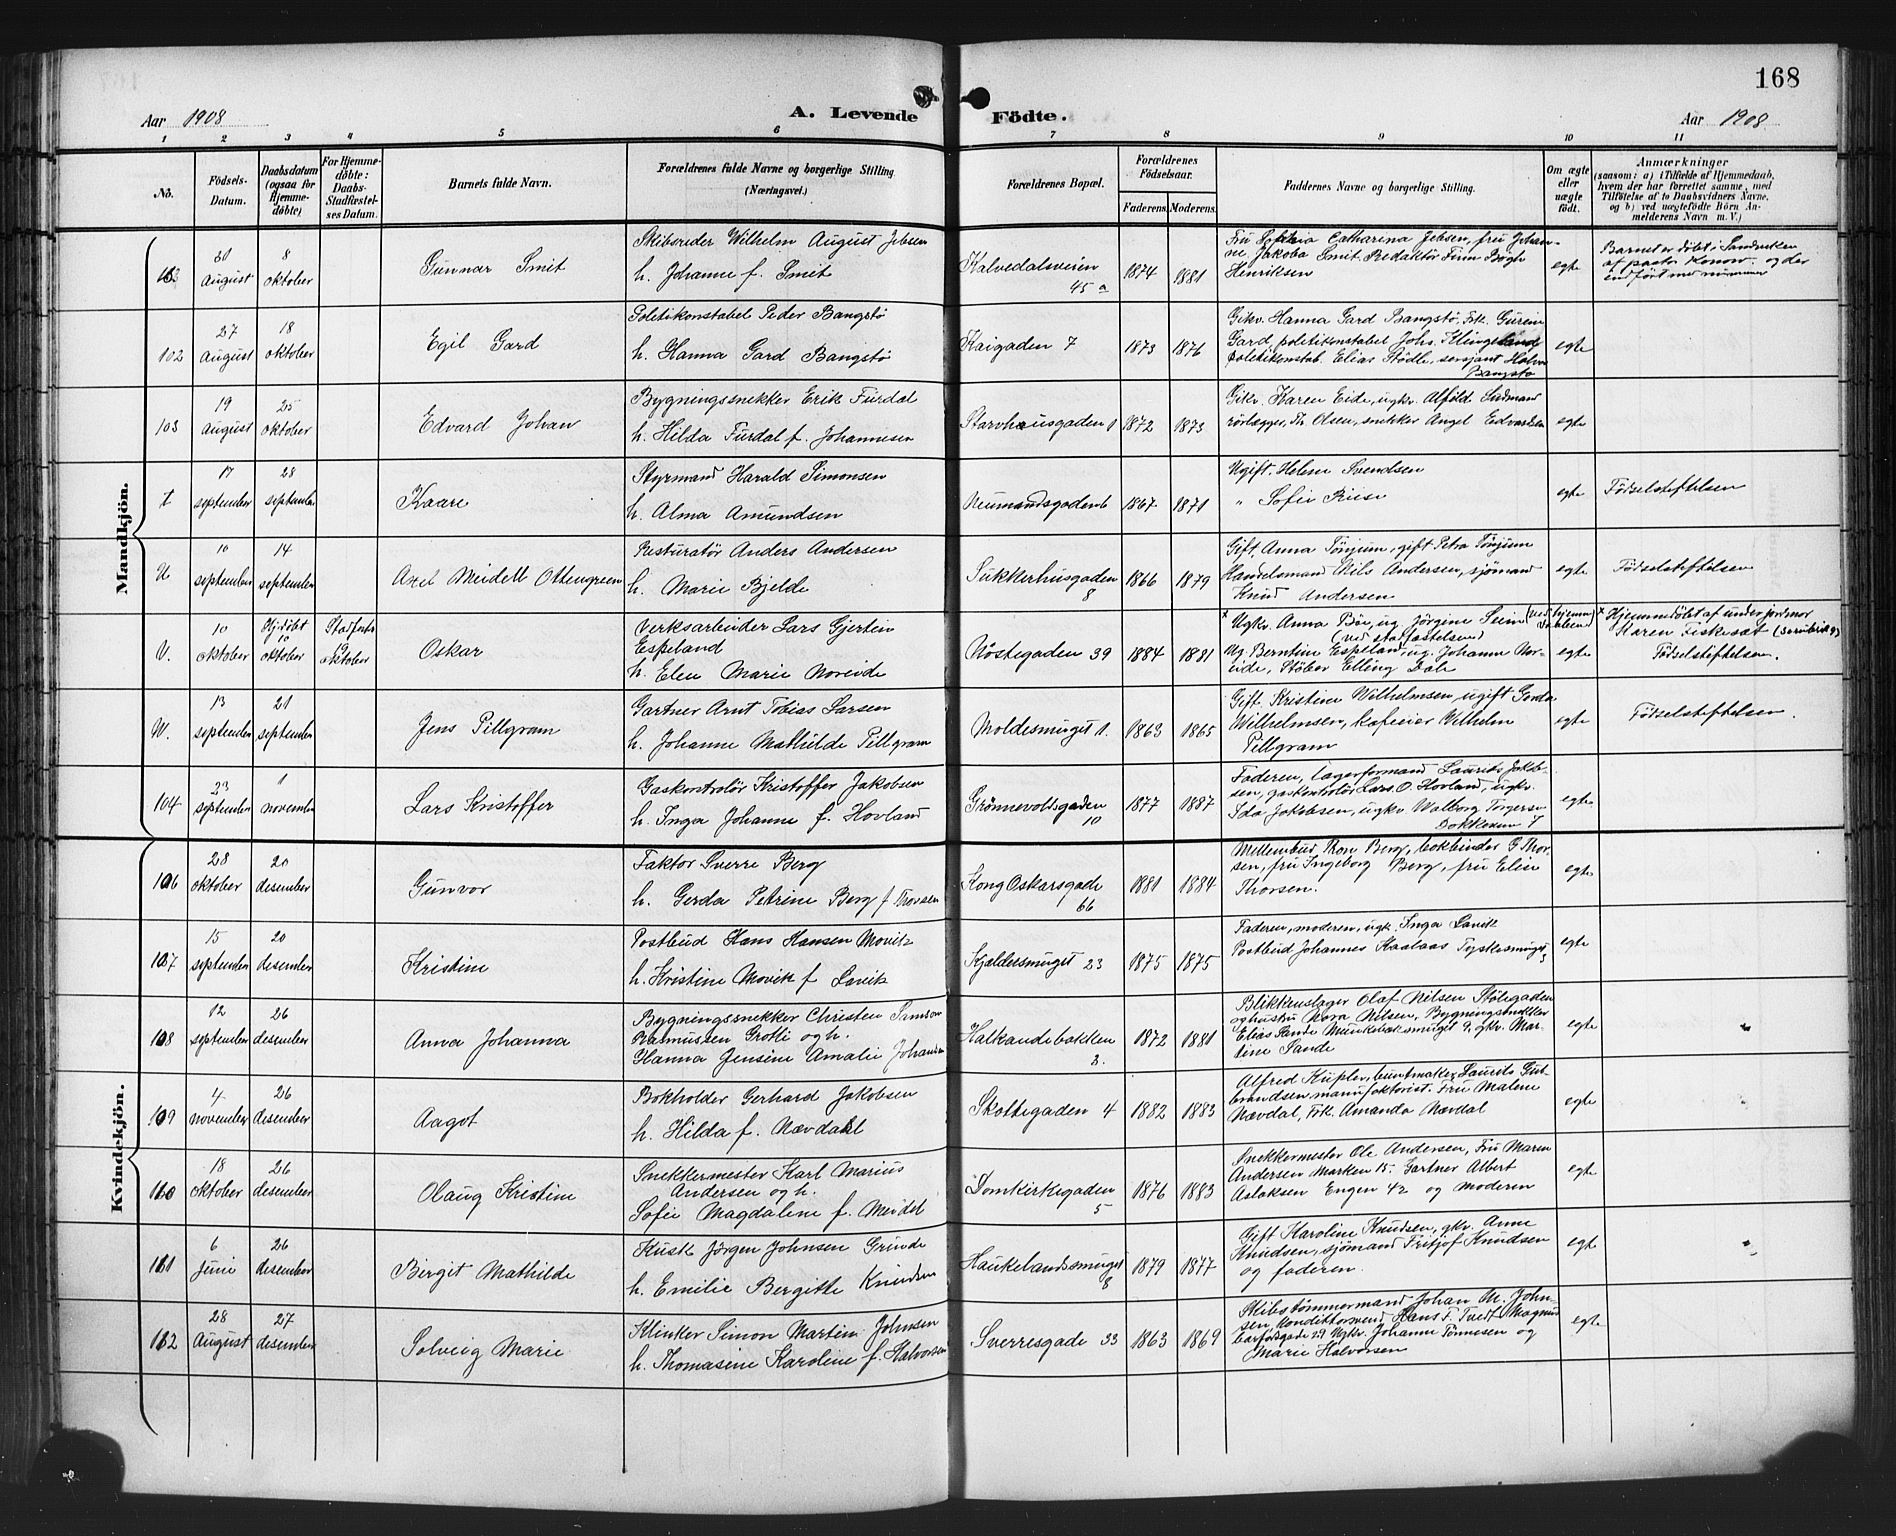 168
Aar 1908
A. Levende Födte.
Aar 1908
1 2 3 4 5 6 7 8 9 10 11
No.
Födsels-
Datum.
Daabsdatum
(ogsaa for
Hjemme-
döbte)
For Hjemme-
döbte:
Daabs-
Stadfæstel-
ses Datum.
Barnets fulde Navn.
Forældrenes fulde Navne og borgerlige Stilling
(Næringsvei.)
Forældrenes Bopæl.
Forældrenes
Födselsaar.
Faderens. Moderens.
Faddernes Navne og borgerlige Stilling.
Om ægte
eller
uægte
födt.
Anmærkninger
(saasom: a) i Tilfælde af Hjemmedaab,
hvem der har forrettet samme, med
Tilföielse af to Daabsvidners Navne,
og b) ved uægtefödte Börn An-
melderens Navn m. V.)
Mandkjön.
August
8
oktober
Gunnar Smit
Skibsreder Wilhelm August Jebsen
h. Johanne f. Smit
Kalvedalsveien
45 a
1874 1881
Fru Sophia Catharina Jebsen, fru Johan-
ne Jakoba Smit. Redaktör
Henriksen
egte
Barnet er döbt i Sandviken
af pastor Konow og der
indfört med nummer
102
27
August
18
oktober
Egil Gard
Politikonstabel Peder Bangstö
h. Hanna Gard Bangstö
Kaigaden 7
1873 1876
Gikv. Hanna Gard Bangstö, Frk.
Gard, politikonstabel Johs. Klingeland
politikonstab. Elias Stödle, sersjant
Bangstö
egte
103
19
August
25
oktober
Edvard Johan
Bygningssnekker Erik Furdal
h. Hilda Furdal f. Johannesen
Starvhusgaden 1
1872 1873
Gikv. Karen Eide, ugkv.
rörlægger, Th. Olsen, snekker Angel Edvardsen
egte
t
17
september
28
september
Kaare
Styrmand Harald Simonsen
h. Alma Amundsen
Neumandsgaden 6
1867 1871
Ugift. Helene Svendsen
" Sofie
egte
Födselstiftelsen
U
10
september
14
september
Axel Meidell Ottengreen
Restauratör Anders Andersen
h. Marie Bjelde
Sukkerhusgaden
8
1866 1879
Gift. Anna Tönjum, gift Petra Tönjum
Handelsmand Nils Andersen, sjömand
Knud Andersen
egte
Födselstiftelsen
V.
10
oktober
Hj.döbt
10
oktober
Stadfæstet
oktober
Oskar
Verksarbeider Lars Gjertin
Espeland
h. Elen Marie Noreide
Nöstegaden 39
1884 1881
x Ugkv. Anna Böe, ug. Jörgine Seim (ved hjemme
daaben)
(ved stadfæstelsen)
Ug. Berntine Espeland, ug. Johanne Nor-
eide, Stöber Elling Dale
egte
x Hjemmedöbt af underjordmor
Karen Fiskeset
Födselstiftelsen.
W.
13
september
21
september
Jens Pillgram
Gartner Arnt Tobias Larsen
h. Johanne Mathilde Pillgram
Moldesmuget 1.
1863 1865
Gift. Kristine Wilhelmsen, ugift Gerda
Wilhelmsen, kafeeier Wilhelm
Pillgram
egte
Födselstiftelsen.
104
23
september
1
november
Lars Kristoffer
Gaskontrolör Kristoffer Jakobsen
h. Inga Johanne f. Hovland
Grönnevoldsgaden
10
1877 1887
Faderen, Lagerformand Laurits Jakob-
sen, gaskontrolör Lars O. Hovland, ugkv.
Ida Jakobsen, ugkv Walborg Torgersen
Dokkeveien 7
egte
Kvindekjön.
106
28
oktober
20
desember
Gunvor
Faktor Sverre Berg
h. Gerda Petrine Berg f Thorsen
Kong Oskarsgade
66
1881 1884
Berg, bokbinder G. Thor-
sen, fru Ingeborg Berg, fru Elise
Thorsen.
egte
107
15
september
20
desember
Kristine
Postbud Hans Hansen Movik
h. Kristine Movik f Lavik
Kjeldersmuget 23
1875 1875
Faderen, moderen, ugk. Inga Lavik
Postbud Johannes Kaalaas Tyskesmuget
3
egte
108
12
september
26
desember
Anna Johanna
Bygningssnekker Christen Samson
Rasmussen Grotli og h.
Hanna Jensine Amalie Johansen
Kalkandebakken
3.
1872 1881
Blikkenslager Olaf Nilsen Stölegaden
og hustru Nora Nilsen, Bygningssnekker
Elias Sande Munkebæksmuget 9, gkv. Mar-
tine Sande
egte
109
4
november
26
desember
Aagot
Bokholder Gerhard Jakobsen
h. Hilda f. Nævdahl
Skottegaden 4
1882 1883
Alfred buntmaker, Laurits Gul-
brandsen manufaktorist. Fru Malene
Nævdal, Frk. Amanda Nævdal
egte
110
18
oktober
26
desember
Olaug Kristine
Snekkermester Karl Marius
Andersen og h.
Sofie Magdalene f. Meidel
Domkirkegaden
5
1876 1883
Snekkermester Ole Andersen, Fru Maren
Andersen Marken 15. Gartner Albert
Aslaksen Engen 42 og Moderen
egte
111
6
Juni
26
desember
Birgit Mathilde
Kusk Jörgen Johnsen Grinde
h. Emilie Bergitte Knudsen
Haukelandsmuget
8
1879 1877
Gift Karoline Knudsen, gkv. Anne
Knudsen, sjömand Fritjof Knudsen
og faderen.
egte
112
28
August
27
desember
Solveig Marie
Klinker Simon Martin Johnsen
h. Thomasine Karoline f. Halvorsen
Sverresgade 33
1863 1869
Skibstömmermand Johan M. John-
sen, Konditorsvend Hans F. Tvedt Magnus
barfodsgade 29 Ugkv. Johanne Tönnesen og
Marie Halvorsen
egte